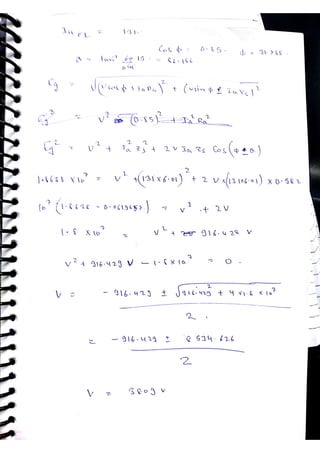 Ia FL = 131.
Cos ϕ = 0.85 ϕ = 31.788
θ = tan⁻¹ = 82.166
Eg = √(V cos ϕ + Ia Ra)² + (V sin ϕ ± Ia Xs)²
Eg² = V² (0.85)² + Ia² Ra²
Eg² = V² + Ia² Zs² + 2 V Ia Zs Cos (ϕ + θ)
1.8628 × 10⁷ = V² + (131 × 6.01)² + 2 V × (131 × 6.01) × 0.582
10⁷ (1.8628 - 0.0613653) = V² + 2V
1.8 × 10⁷ = V² + 916.429 V
V² + 916.429 V - 1.8 × 10⁷ = 0.
V = - 916.429 ± √916.429² + 4 × 1.8 × 10⁷
2.
= - 916.429 ± 8534.626
2
V = 3809 V